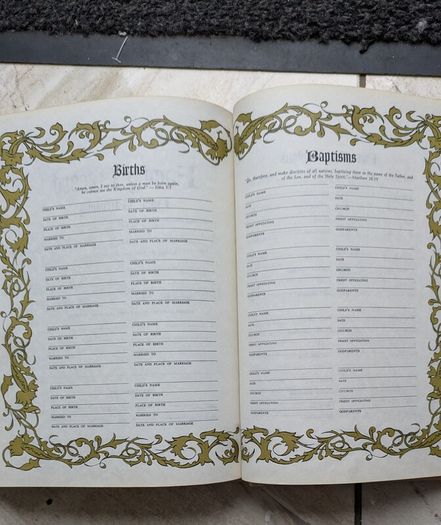 Births
"Amen, amen, I say to thee, unless a man be born again,
he cannot see the Kingdom of God." — John 3:3
CHILD'S NAME
DATE OF BIRTH
PLACE OF BIRTH
MARRIED TO
DATE AND PLACE OF MARRIAGE
CHILD'S NAME
DATE OF BIRTH
PLACE OF BIRTH
MARRIED TO
DATE AND PLACE OF MARRIAGE
CHILD'S NAME
DATE OF BIRTH
PLACE OF BIRTH
MARRIED TO
DATE AND PLACE OF MARRIAGE
CHILD'S NAME
DATE OF BIRTH
PLACE OF BIRTH
MARRIED TO
DATE AND PLACE OF MARRIAGE
CHILD'S NAME
DATE OF BIRTH
PLACE OF BIRTH
MARRIED TO
DATE AND PLACE OF MARRIAGE
CHILD'S NAME
DATE OF BIRTH
PLACE OF BIRTH
MARRIED TO
DATE AND PLACE OF MARRIAGE
CHILD'S NAME
DATE OF BIRTH
PLACE OF BIRTH
MARRIED TO
DATE AND PLACE OF MARRIAGE
CHILD'S NAME
DATE OF BIRTH
PLACE OF BIRTH
MARRIED TO
DATE AND PLACE OF MARRIAGE
Baptisms
"Go, therefore, and make disciples of all nations, baptizing them in the name of the Father, and
of the Son, and of the Holy Spirit."—Matthew 28:19
CHILD'S NAME
DATE
CHURCH
PRIEST OFFICIATING
GODPARENTS
CHILD'S NAME
DATE
CHURCH
PRIEST OFFICIATING
GODPARENTS
CHILD'S NAME
DATE
CHURCH
PRIEST OFFICIATING
GODPARENTS
CHILD'S NAME
DATE
CHURCH
PRIEST OFFICIATING
GODPARENTS
CHILD'S NAME
DATE
CHURCH
PRIEST OFFICIATING
GODPARENTS
CHILD'S NAME
DATE
CHURCH
PRIEST OFFICIATING
GODPARENTS
CHILD'S NAME
DATE
CHURCH
PRIEST OFFICIATING
GODPARENTS
CHILD'S NAME
DATE
CHURCH
PRIEST OFFICIATING
GODPARENTS